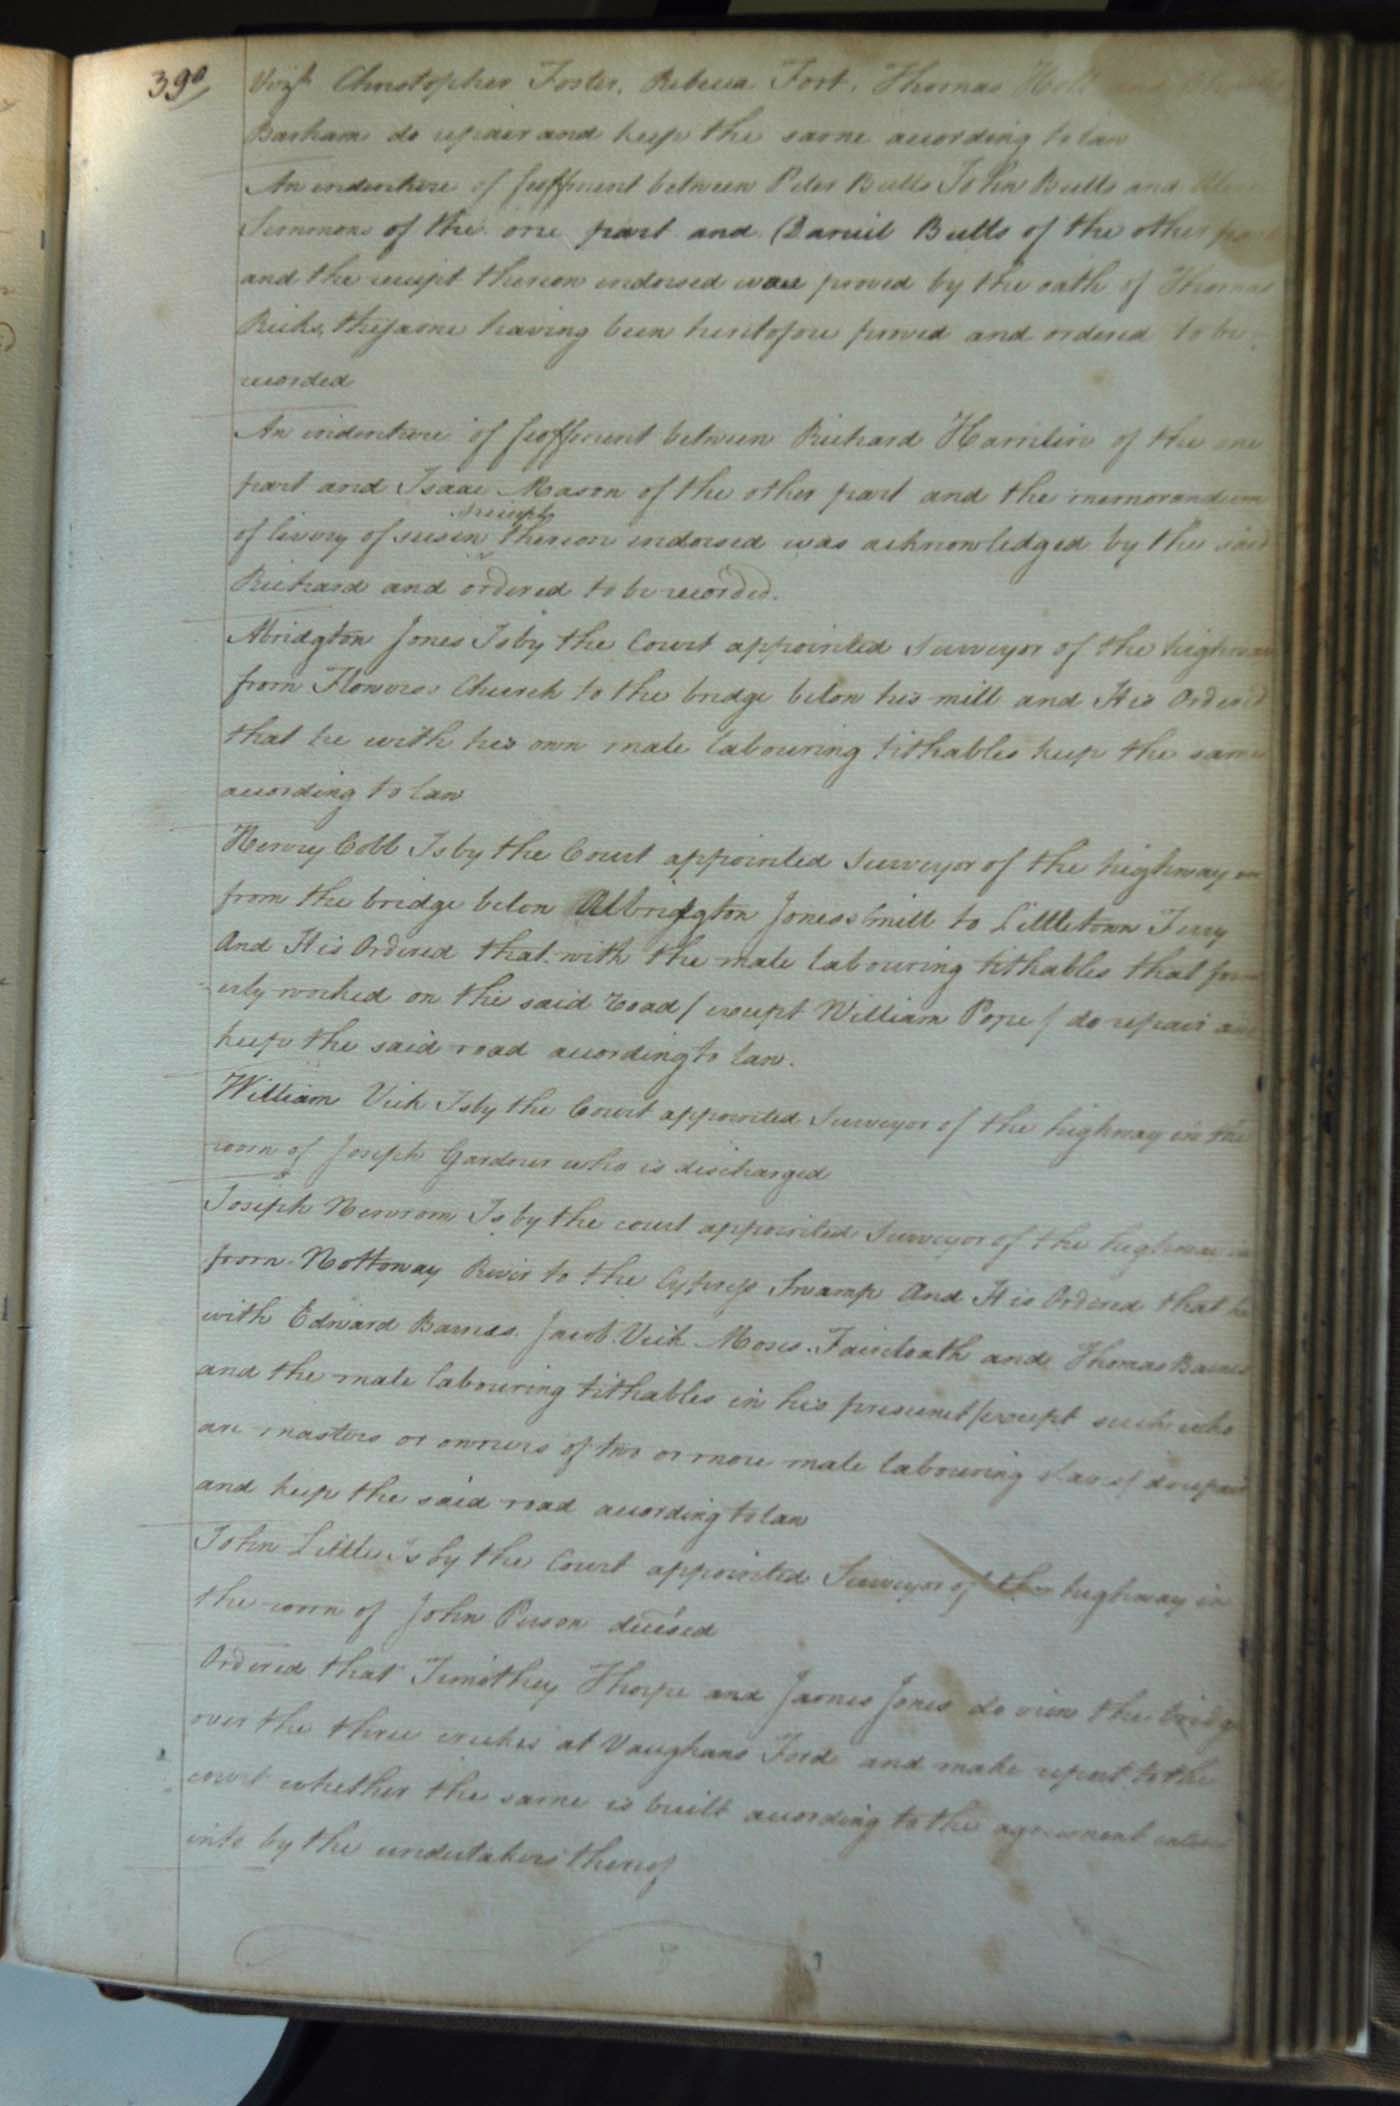 390
Vizt Christopher Foster, Rebecca Fort, Thomas Holt and
Barham do repair and keep the same according to law
An indenture of feoffment between Peter Butts John Butts and
Simmons of the one part and Daniel Butts of the other part
and the receipt thereon endorsed was proved by the oath of Thomas
Ricks, the same having been heretofore proved and ordered to be
recorded
An indenture of feoffment between Richard Harrilin of the one
part and Isaac Mason of the other part and the memorandum
receipt
of livery of seisin thereon endorsed was acknowledged by the said
Richard and ordered to be recorded.
Abridgton Jones Is by the Court appointed Surveyor of the highway
from Flowers Church to the bridge below his mill and It is Ordered
that he with his own male labouring tithables keep the same
according to law
Henry Cobb Is by the Court appointed Surveyor of the highway
from the bridge below Albridgton Joness mill to Littletown Ferry
And It is Ordered that with the male labouring tithables that form
erly worked on the said road / except William Pope / do repair and
keep the said road according to law.
William Vick Is by the Court appointed Surveyor of the highway in the
room of Joseph Gardner who is discharged
Joseph Newsom Is by the court appointed Surveyor of the highway
from Nottoway River to the Cypress Swamp And It is Ordered that he
with Edward Barnes. Jacob Vick Moses Faircloath and Thomas Barnes
and the male labouring tithables in his presinct / except such who
are masters or owners of two or more male labouring slaves / do repair
and keep the said road according to law
John Little Is by the Court appointed Surveyor of the highway in
the room of John Person deceised
Ordered that Timothey Thorpe and James Jones do view the bridge
over the three creeks at Vaughans Ford and make report to the
court whether the same is built according to the agreement entered
into by the undertakers thereof